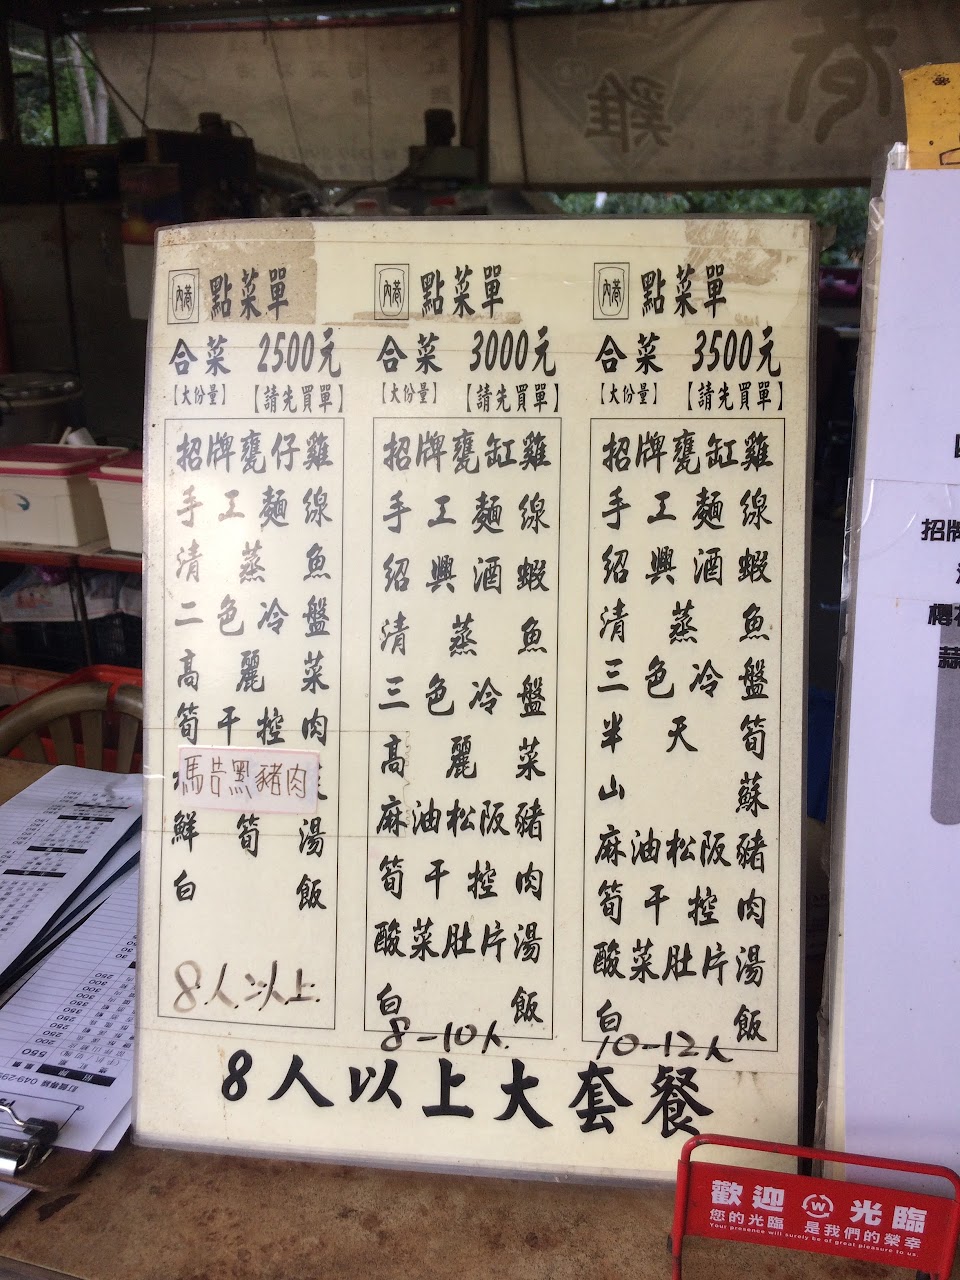 雞
內巷
點菜單
合菜 2500元
【大份量】 【請先買單】
招牌甕仔雞
手工麵線
清蒸魚
二色冷盤
高麗菜
筍干控肉
馬告黑豬肉
鮮筍湯
白飯
8人以上
內巷
點菜單
合菜 3000元
【大份量】 【請先買單】
招牌甕缸雞
手工麵線
紹興酒蝦
清蒸魚
三色冷盤
高麗菜
麻油松阪豬
筍干控肉
酸菜肚片湯
白飯
8-10人
內巷
點菜單
合菜 3500元
【大份量】 【請先買單】
招牌甕缸雞
手工麵線
紹興酒蝦
清蒸魚
三色冷盤
半天筍
山蘇
麻油松阪豬
筍干控肉
酸菜肚片湯
白飯
10-12人
8人以上大套餐
招牌
櫻花
蒜
歡迎 W 光臨
您的光臨 是我們的榮幸
Your presence will surely be of great pleasure to us.